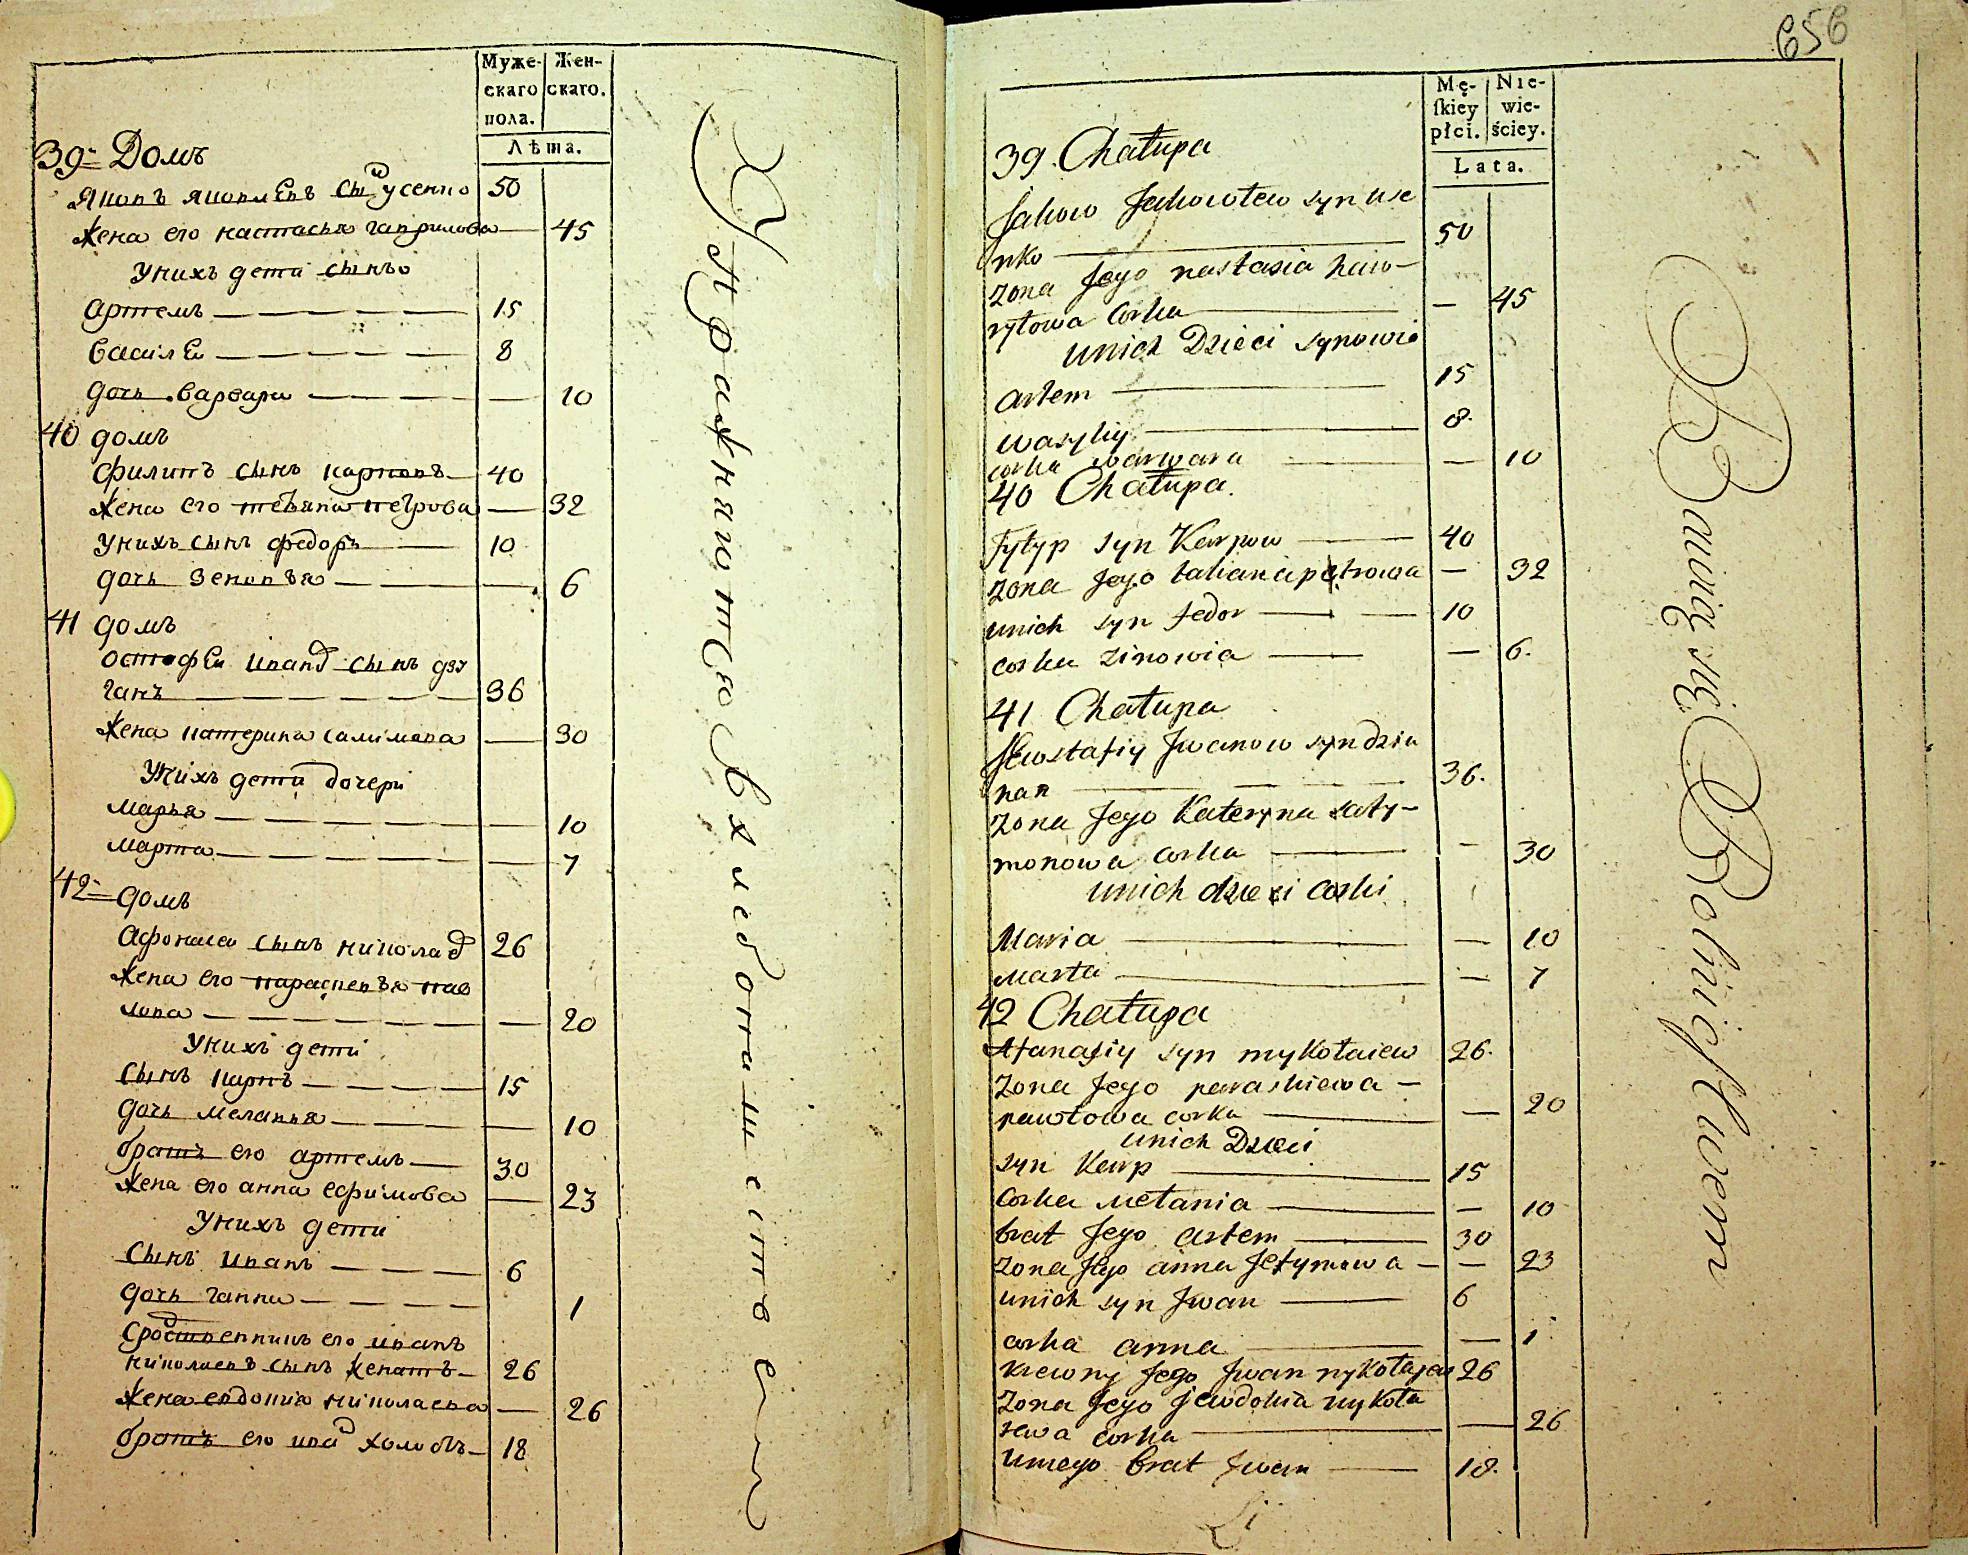 Муже- Жен-
скаго скаго.
пола.
Лѣта.
39. Домъ
Яковъ Яковлевъ сынъ усенко 50
Жена его настасья гаврилова — 45
Унихъ дети сыны
артемъ — 15
василеи — 8
дочь варвара — 10
40 домъ
филипъ сынъ карповъ — 40
жена его татьяна петрова — 32
унихъ сынъ федоръ — 10
дочь зеновья — 6
41 домъ
остафеи иванов сынъ дзю
ганъ — 36
Жена катерина салимова — 30
Унихъ дети дочери
марья — 10
марта — 7
42 домъ
Афонасеи сынъ николаев 26
Жена его парасковья пав
лова — 20
Унихъ дети
сынъ карпъ — 15
дочь меланья — 10
братъ его артемъ — 30
Жена его анна ефимова — 23
Унихъ дети
сынъ иванъ — 6
дочь ганна — 1
сродственникъ его иванъ
николаевъ сынъ женатъ — 26
Жена евдокия николаева — 26
братъ его иван холостъ — 18
Упражняются в хлебопашестве
656
Mę- Nie-
ſkiey wie-
płci. ściey.
Lata.
39. Chałupa
Jakow Jakowlew syn use
nko — 50
zona Jego nastasia haw-
ryłowa corka — 45
unich Dzieci synowie
artem — 15
wasyliy — 8.
corka warwara — 10
40 Chałupa.
fylyp syn Karpow — 40
zona Jego tatiana petrowa — 32
unich syn fedor — 10
corka zinowia — 6.
41 Chałupa
Jewstafiy Jwanow syn dziu
han — 36.
zona Jego Kateryna saly-
monowa corka — 30
unich dzieci corki
Maria — 10
Marta — 7
42 Chałupa
Afanasiy syn mykołaiew 26.
zona Jego paraskiewa —
pawłowa corka — 20
unich Dzieci
syn Karp — 15
corka Mełania — 10
brat Jego artem — 30
zona Jego anna Jefymowa — 23
unich syn Jwan — 6
corka anna — 1
Krewny Jego Jwan mykołajew 26
zona Jego Jewdokia mykoła
iewa corka — 26
uniego brat Jwan — 18.
Bawią się Rolnictwem